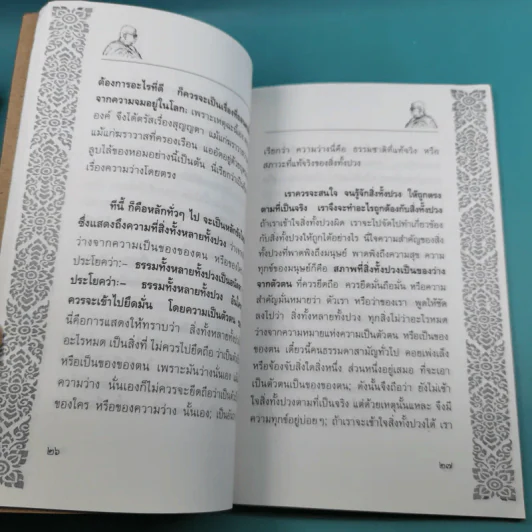 ต้องการอะไรที่ดี ก็ควรจะเป็นเรื่องที่
จากความจมอยู่ในโลก: เพราะเหตุฉะนี้
องค์ จึงได้ตรัสเรื่องสุญญตา แม้แก่
แม้แก่ฆราวาสที่ครองเรือน แออัดอยู่ด้วย
ลูบไล้ของหอมอย่างนี้เป็นต้น นี่เรียกว่า
เรื่องความว่างโดยตรง
ทีนี้ ก็คือหลักทั่วๆ ไป จะเป็นหลัก
ซึ่งแสดงถึงความที่สิ่งทั้งหลายทั้งปวง
ว่างจากความเป็นของของตน หรือ
ประโยคว่า:– ธรรมทั้งหลายทั้งปวงเป็น
ประโยคว่า:– ธรรมทั้งหลายทั้งปวง
ควรจะเข้าไปยึดมั่น โดยความเป็นตัวตน
นี่คือการแสดงให้ทราบว่า สิ่งทั้งหลาย
อะไรหมด เป็นสิ่งที่ ไม่ควรไปยึดถือ
หรือเป็นของของตน เพราะมันว่างนั่นเอง
ความว่าง นั่นเองก็ไม่ควรจะยึดถือว่าเป็น
ของใคร หรือของความว่าง นั่นเอง;
๒๖
เรียกว่า ความว่างนี่คือ ธรรมชาติที่แท้จริง หรือ
สภาวะที่แท้จริงของสิ่งทั้งปวง
เราควรจะสนใจ จนรู้จักสิ่งทั้งปวง ให้ถูกตรง
ตามที่เป็นจริง เราจึงจะทำอะไรถูกต้องกับสิ่งทั้งปวง
ถ้าเราเข้าใจสิ่งทั้งปวงผิด เราจะไปจัดไปทำเกี่ยวข้อง
กับสิ่งทั้งปวงให้ถูกได้อย่างไร นี่ใจความสำคัญของสิ่ง
ทั้งปวงที่พาดพิงถึงมนุษย์ พาดพิงถึงความสุข ความ
ทุกข์ของมนุษย์ก็คือ สภาพที่สิ่งทั้งปวงเป็นของว่าง
จากตัวตน ที่ควรยึดถือ ควรยึดมั่นถือมั่น หรือความ
สำคัญมั่นหมายว่า ตัวเรา หรือว่าของเรา พูดให้ชัด
ลงไปว่า สิ่งทั้งหลายทั้งปวง ทุกสิ่งไม่ว่าอะไรหมด
ว่างจากความหมายแห่งความเป็นตัวตน หรือเป็นของ
ของตน เดี๋ยวนี้คนธรรมดาสามัญทั่วไป คอยเพ่งเล็ง
หรือจ้องจับสิ่งใดสิ่งหนึ่ง ส่วนหนึ่งอยู่เสมอ ที่จะเอา
เป็นตัวตนเป็นของของตน; ดังนั้นจึงถือว่า ยังไม่เข้า
ใจสิ่งทั้งปวงตามที่เป็นจริง แต่ด้วยเหตุนั้นแหละ จึงมี
ความทุกข์อยู่บ่อย ๆ; ถ้าเราจะเข้าใจสิ่งทั้งปวงได้ เรา
๒๗